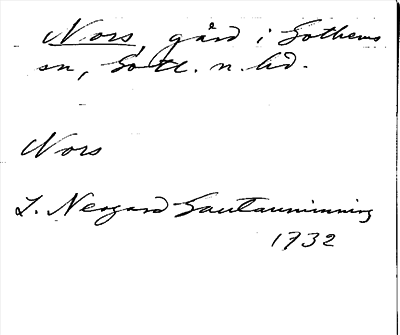 Nors, gård i Gothems
sn, Gotl. n. hd.
Nors
L. Neogard Gautauminning
1732